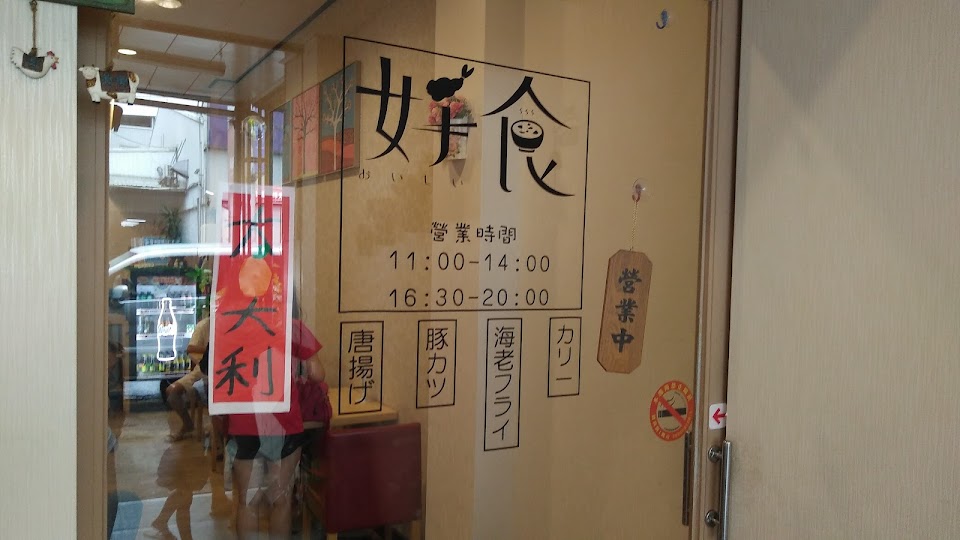 好食
おいしい
營業時間
11:00-14:00
16:30-20:00
唐揚げ
豚カツ
海老フライ
カリー
營業中
大利